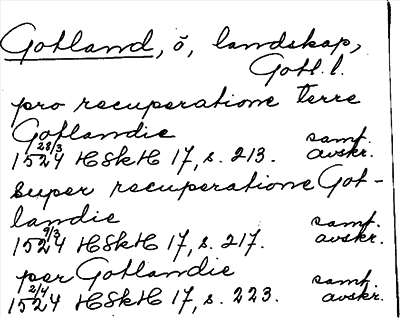 Gotland, ö, landskap,
Gotl. l.
pro recuperatione terre
Gotlandie
1524 28/3 HSkH 17, s. 213. samt. avskr.
super recuperatione Got-
landie
1524 9/3 HSkH 17, s. 217. samt. avskr.
per Gotlandie
1524 2/4 HSkH 17, s. 223. samt. avskr.